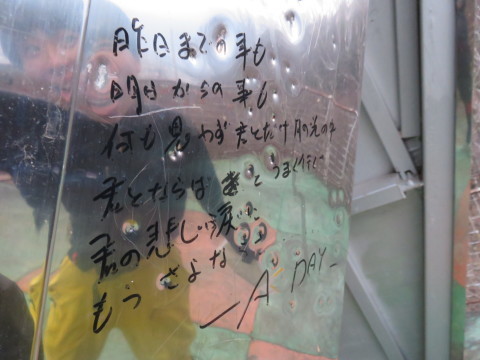 昨日までの事も
明日からの事も
何も思わず君とだけ月の光の中
君とならばきっとうまく行く
君の悲しい涙に
もうさよなら
― A DAY ―